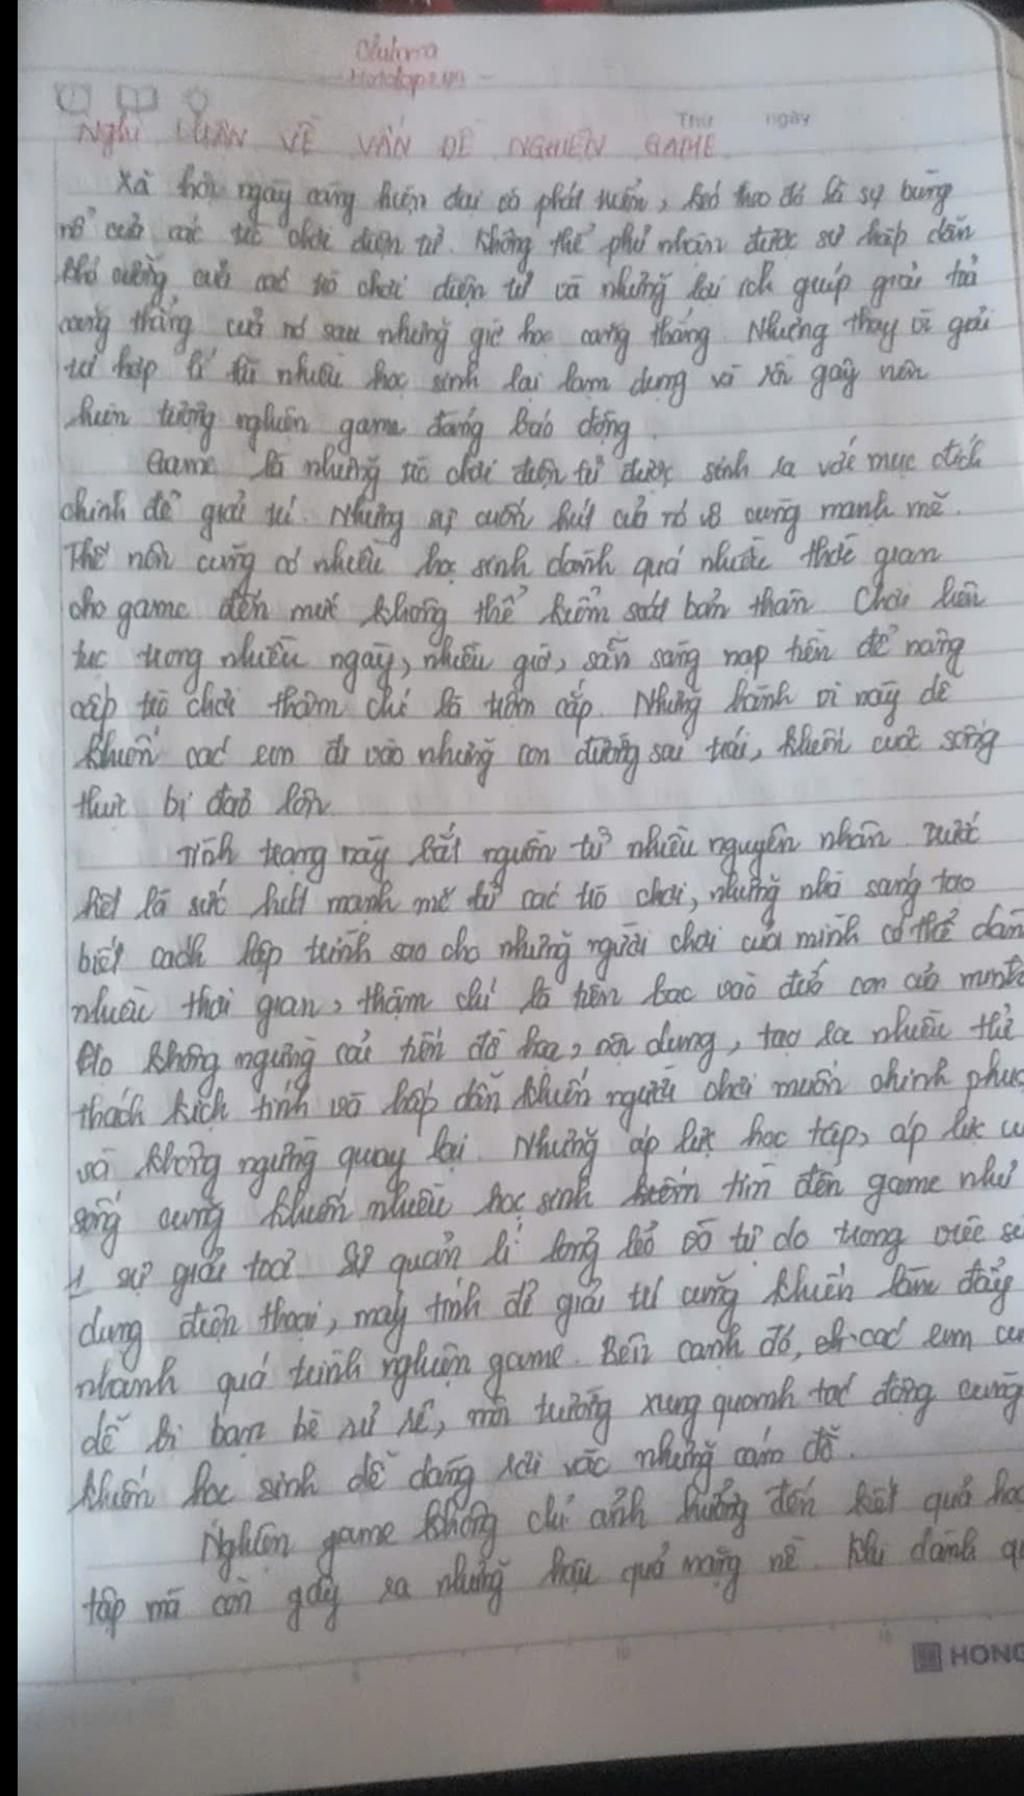 Thứ ngày
NGHỊ LUẬN VỀ VẤN ĐỀ NGHIỆN GAME
Xã hội ngày càng hiện đại và phát triển, kéo theo đó là sự bùng
nổ của các trò chơi điện tử. Không thể phủ nhận được sự hấp dẫn
khó cưỡng của các trò chơi điện tử và những lợi ích giúp giải tỏa
căng thẳng của nó sau những giờ học căng thẳng. Nhưng thay vì giải
trí hợp lí thì nhiều học sinh lại lạm dụng và gây nên
hiện tượng nghiện game đáng báo động.
Game là những trò chơi điện tử được sinh ra với mục đích
chính để giải trí. Nhưng sự cuốn hút của nó vô cùng mạnh mẽ.
Thế nên cũng có nhiều học sinh dành quá nhiều thời gian
cho game đến mức không thể kiểm soát bản thân. Chơi liên
tục trong nhiều ngày, nhiều giờ, sẵn sàng nạp tiền để nâng
cấp trò chơi thậm chí là trộm cắp. Những hành vi này dễ
khiến các em đi vào những con đường sai trái, khiến cuộc sống
thực bị đảo lộn.
Tình trạng này bắt nguồn từ nhiều nguyên nhân. Trước
hết là sức hút mạnh mẽ từ các trò chơi, những nhà sáng tạo
biết cách lập trình sao cho những người chơi của mình có thể dành
nhiều thời gian, thậm chí là tiền bạc vào đứa con của mình.
Họ không ngừng cải tiến đồ họa, nội dung, tạo ra nhiều thử
thách kịch tính và hấp dẫn khiến người chơi muốn chinh phục
và không ngừng quay lại. Những áp lực học tập, áp lực cu
sống cũng khiến nhiều học sinh tìm đến game như
1 sự giải toả. Sự quản lí lỏng lẻo và tự do trong việc sử
dụng điện thoại, máy tính để giải trí cũng khiến làm đẩy
nhanh quá trình nghiện game. Bên cạnh đó, các em cũ
dễ bị bạn bè rủ rê, môi trường xung quanh tác động cũng
khiến học sinh dễ dàng rơi vào những cám dỗ.
Nghiện game không chỉ ảnh hưởng đến kết quả học
tập mà còn gây ra những hậu quả nặng nề. Khi dành qu
HONG